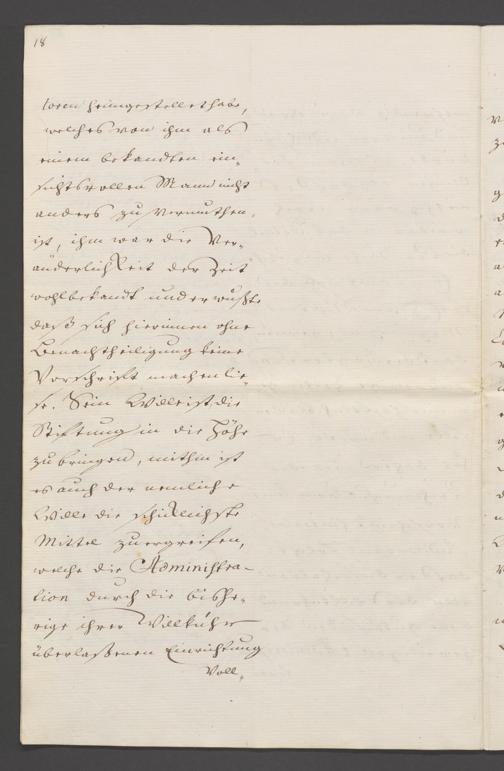 18
toren heimgestellet habe,
welches von ihm als
einem bekandten ein-
sichtsvollen Mann nicht
anders zu vermuthen
ist, ihm war die Ver-
änderlichkeit der Zeit
wohlbekandt und er wußte
daß sich hierinnen ohne
Benachtheiligung keine
Vorschrift machen lie-
ße. Sein Wille ist, die
Stiftung in die Höhe
zu bringen, mithin ist
es auch der nemliche
Wille die schicklichste
Mittel zu ergreifen,
welche die Administra-
tion durch die bishe-
rige ihrer Willkühr
überlaßenen Einrichtung
Voll-